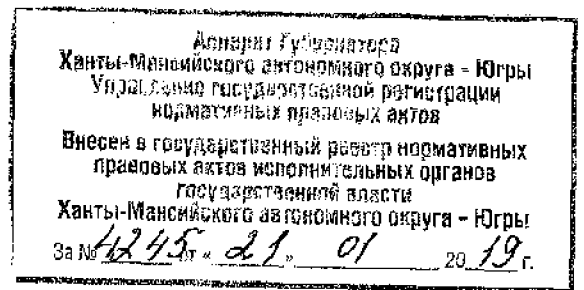 Аппарат Губернатора
Ханты-Мансийского автономного округа – Югры
Управление государственной регистрации
нормативных правовых актов
Внесен в государственный реестр нормативных
правовых актов исполнительных органов
государственной власти
Ханты-Мансийского автономного округа – Югры
За № 4245 от « 21 » 01 20 19 г.